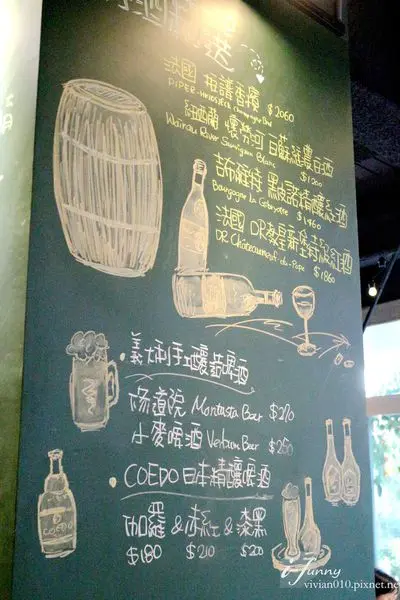 法國 香檳 $2060
PIPER-HEIDSIECK Champagne Brut
紐西蘭 懷勞河 白蘇維濃白酒
Wairau River Sauvignon Blanc
$1200
布維特 黑皮諾精釀紅酒
Bourgogne La $1460
法國 DR教皇新堡特級紅酒
DR Châteauneuf-du-Pape $1860
義大利手工釀造啤酒
修道院 Montasta Beer $270
小麥啤酒 Verbum Beer $250
COEDO日本精釀啤酒
伽羅 & 赤紅 & 漆黑
$180 $210 $200
COEDO
iFunny
vivian010.pixnet.ne